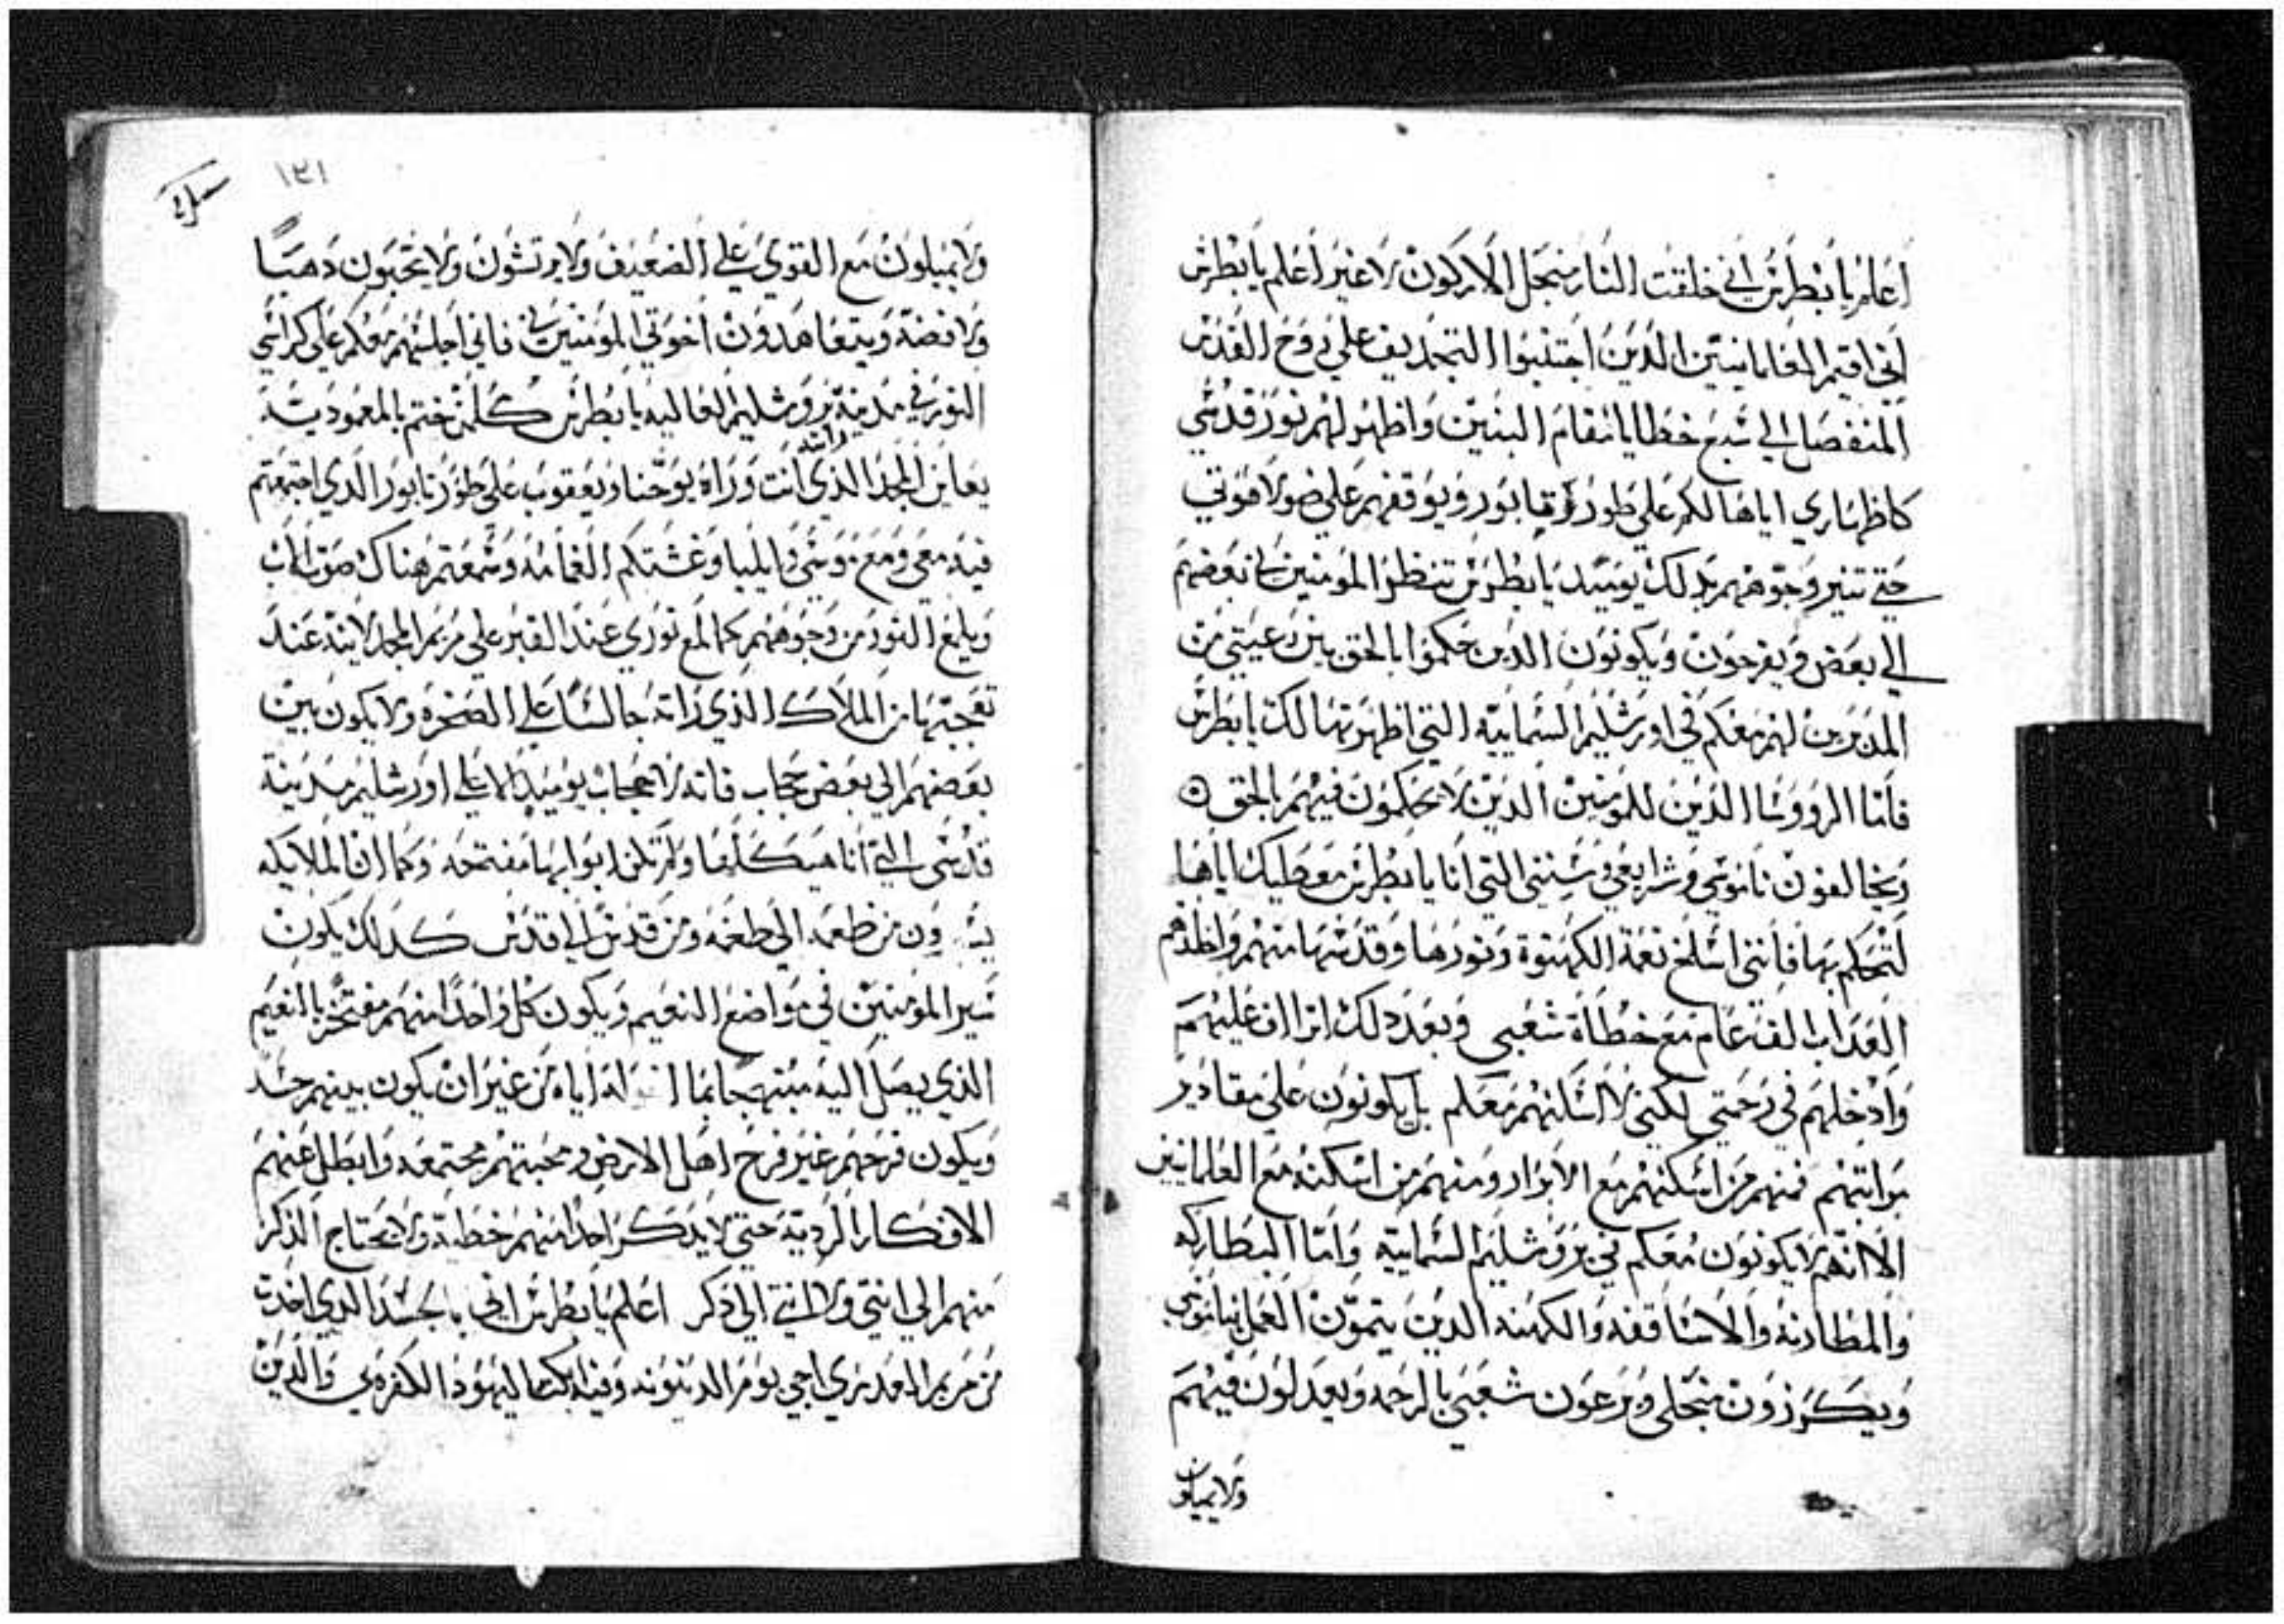 اعلم يا بطرس اني خلقت النار منجل الاركون لا غير اعلم يا بطرس
اني اقيم العلمانيين الدين اجتنبوا التجديف علي روح القدس
المنفصل الي سبع خطايا انتقام البنين واظهر لهم نور قدسي
كاظهاري اياها لكم علي طور تابور ويوقفهم علي ضو لاهوتي
حتي تنير وجوههم بدلك يوميد يا بطرس تنظر المومنين بعضهم
الي بعض ويفرحون ويكونون الدين حكموا بالحق بين رعيتي من
المدبرين لهم معكم في اورشليم السماييه التي اظهرتها لك يا بطرس
فاما الرووسا الدين للمومنين الدين لا يحكمون فيهم بالحق
ويخالفون ناموسي وشرايعي وسنني التي انا يا بطرس معطيك اياها
لتحكم بها فانني اسلخ نعمة الكهنوة ونورها وقدسها منهم واخلدهم
العداب الف عام مع خطاة شعبي وبعد دلك اتراف عليهم
وادخلهم في رحمتي لكني لا اسكنهم معكم بل يكونون علي مقادير
مراتبهم فمنهم من اسكنهم مع الابرار ومنهم من اسكنه مع العلمانيين
الا انهم لا يكونون معكم في يروشليم السماييه واما البطاركه
والمطارنه والاساقفه والكهنه الدين يتمون العمل بناموسي
ويكرزون منجلي ويرعون شعبي بالرحمه ويعدلون فيهم
ولا يميلون
١٣١
ولا يميلون مع القوي علي الضعيف ولا يرتشون ولا يحبون دهبا
ولا فضة ويتعاهدون اخوتي المومنين فاني اجلسهم معكم علي كراسي
النور في مدينة يروشليم العاليه يا بطرس كلمن ختم بالمعموديه
يعاين المجد الذي انت وراه يوحنا ويعقوب علي طور تابور الدي اجتمعتم
فيه معي ومع موسي وايليا وغشتكم الغمامه وسمعتم هناك صوت الاب
ويلمع النور من وجوههم كما لمع نوري عند القبر علي مريم المجدلانيه عند
تعجبها من الملاك الذي راته جالسا علي الصخره ولا يكون بين
بعضهم الي بعض حجاب فانه لا حجاب يوميد الا علي اورشليم مدينة
قدسي التي انا هيكلها ولم تكن ابوابها مفتحه وكما ان الملايكه
ون من طغمه الي طغمه ومن قدس الي قدس كدلك يكون
سير المومنين في مواضع النعيم ويكون كل واحدا منهم مفتخر بالنعيم
الذي يصل اليه مبتهجا بما اياه من غير ان يكون بينهم حسد
ويكون فرحهم غير فرح اهل الارض ومحبتهم مجتمعه وابطل عنهم
الافكار الرديه حتي لا يدكر احدا منهم خطية ولا يحتاج الدكر
منهم الي انتي ولا انتي الي دكر اعلم يا بطرس اني بالجسد الدي اخدت
من مريم العدري اجي يوم الدينونه وفيه ابكت اليهود الكفره بي والدين